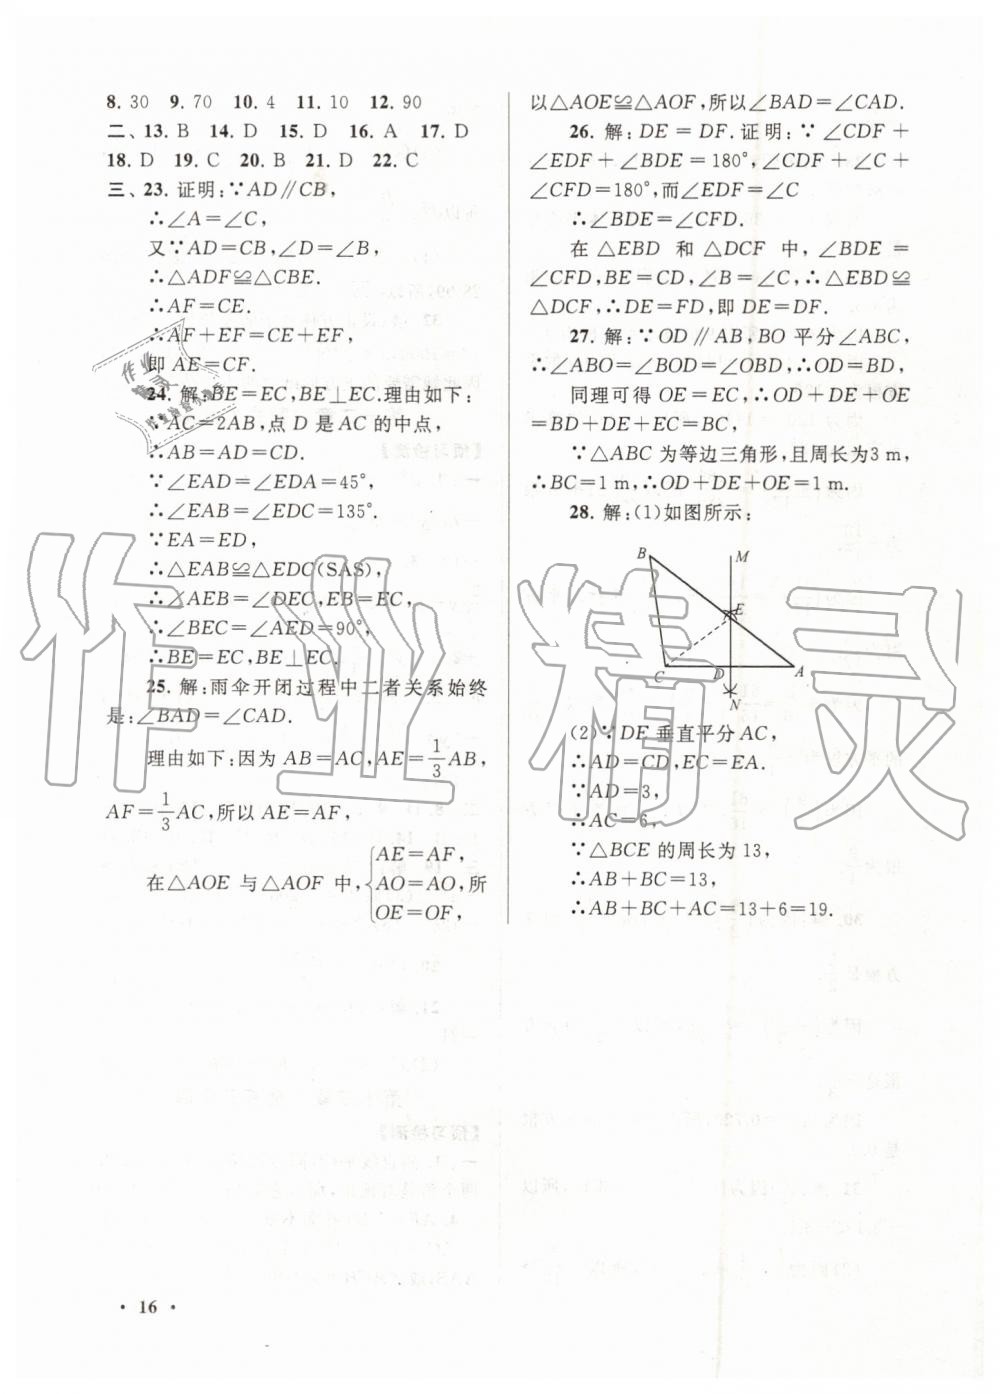 8. 30  9. 70  10. 4  11. 10  12. 90
二、13. B  14. D  15. D  16. A  17. D
18. D  19. C  20. B  21. D  22. C
三、23. 证明:∵AD∥CB,
∴∠A=∠C,
又∵AD=CB,∠D=∠B,
∴△ADF≌△CBE.
∴AF=CE.
∴AF+EF=CE+EF,
即 AE=CF.
24. 解:BE=EC,BE⊥EC.理由如下:
∵AC=2AB,点 D 是 AC 的中点,
∴AB=AD=CD.
∵∠EAD=∠EDA=45°,
∴∠EAB=∠EDC=135°.
∵EA=ED,
∴△EAB≌△EDC(SAS),
∴∠AEB=∠DEC,EB=EC,
∴∠BEC=∠AED=90°,
∴BE=EC,BE⊥EC.
25. 解:雨伞开闭过程中二者关系始终
是:∠BAD=∠CAD.
理由如下:因为 AB=AC,AE=1/3AB,
AF=1/3AC,所以 AE=AF,
在△AOE 与△AOF 中,{AE=AF,
AO=AO,所
OE=OF,
以△AOE≌△AOF,所以∠BAD=∠CAD.
26. 解:DE=DF.证明:∵∠CDF+
∠EDF+∠BDE=180°,∠CDF+∠C+
∠CFD=180°,而∠EDF=∠C
∴∠BDE=∠CFD.
在△EBD 和△DCF 中,∠BDE=
∠CFD,BE=CD,∠B=∠C,∴△EBD≌
△DCF,∴DE=FD,即 DE=DF.
27. 解:∵OD∥AB,BO 平分∠ABC,
∴∠ABO=∠BOD=∠OBD,∴OD=BD,
同理可得 OE=EC,∴OD+DE+OE
=BD+DE+EC=BC,
∵△ABC 为等边三角形,且周长为3 m,
∴BC=1 m,∴OD+DE+OE=1 m.
28. 解:(1)如图所示:
B
M
E
C
D
A
N
(2)∵DE 垂直平分 AC,
∴AD=CD,EC=EA.
∵AD=3,
∴AC=6,
∵△BCE 的周长为 13,
∴AB+BC=13,
∴AB+BC+AC=13+6=19.
· 16 ·
作业精灵